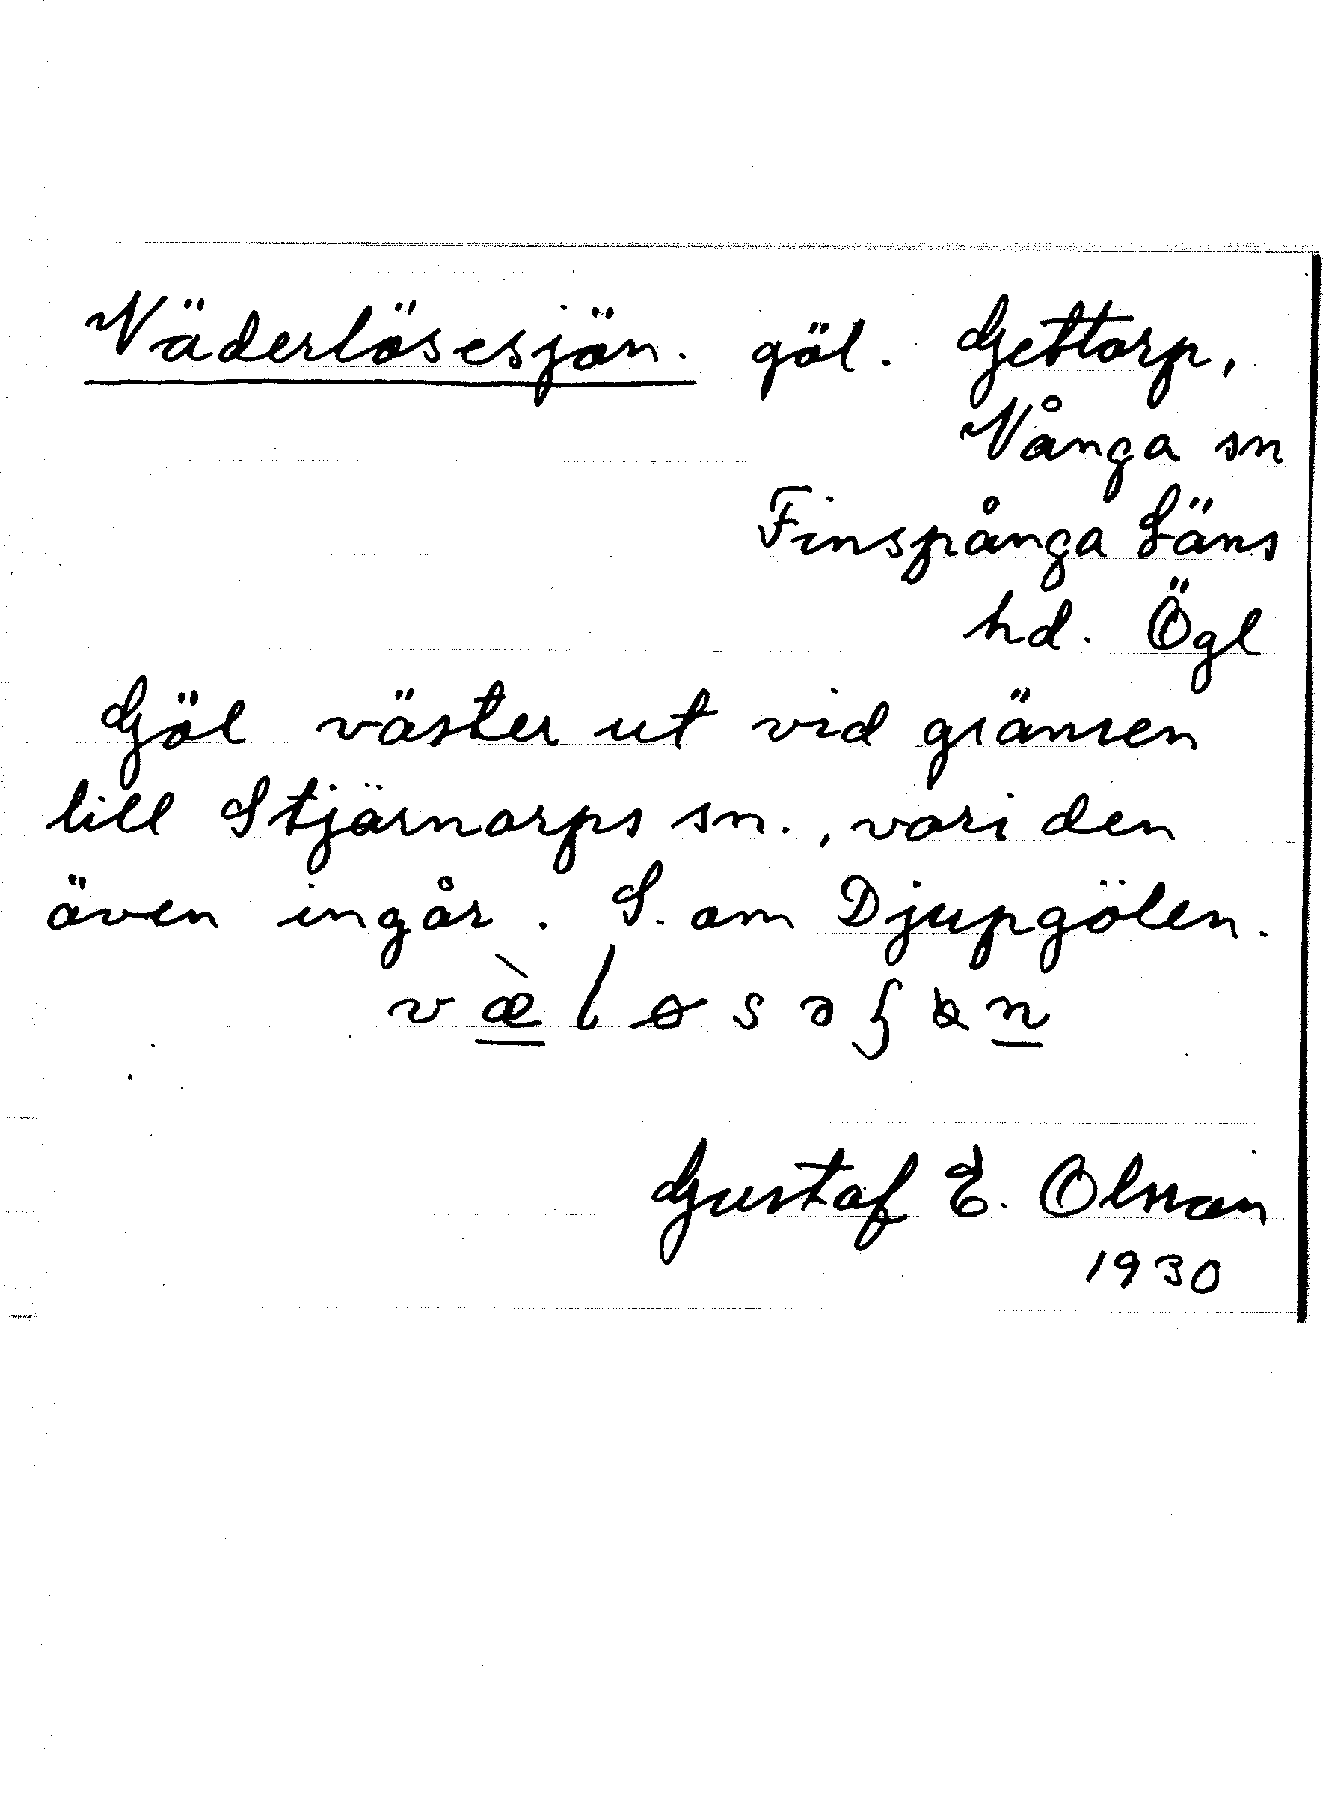 Väderlösesjön. göl. Gettorp,
Vånga sn
Finspånga Läns
hd. Ögl
Göl väster ut vid gränsen
till Stjärnorps sn., vari den
även ingår. S. om Djupgölen.
væ̀løsəʃɵn
Gustaf E. Olsson
1930